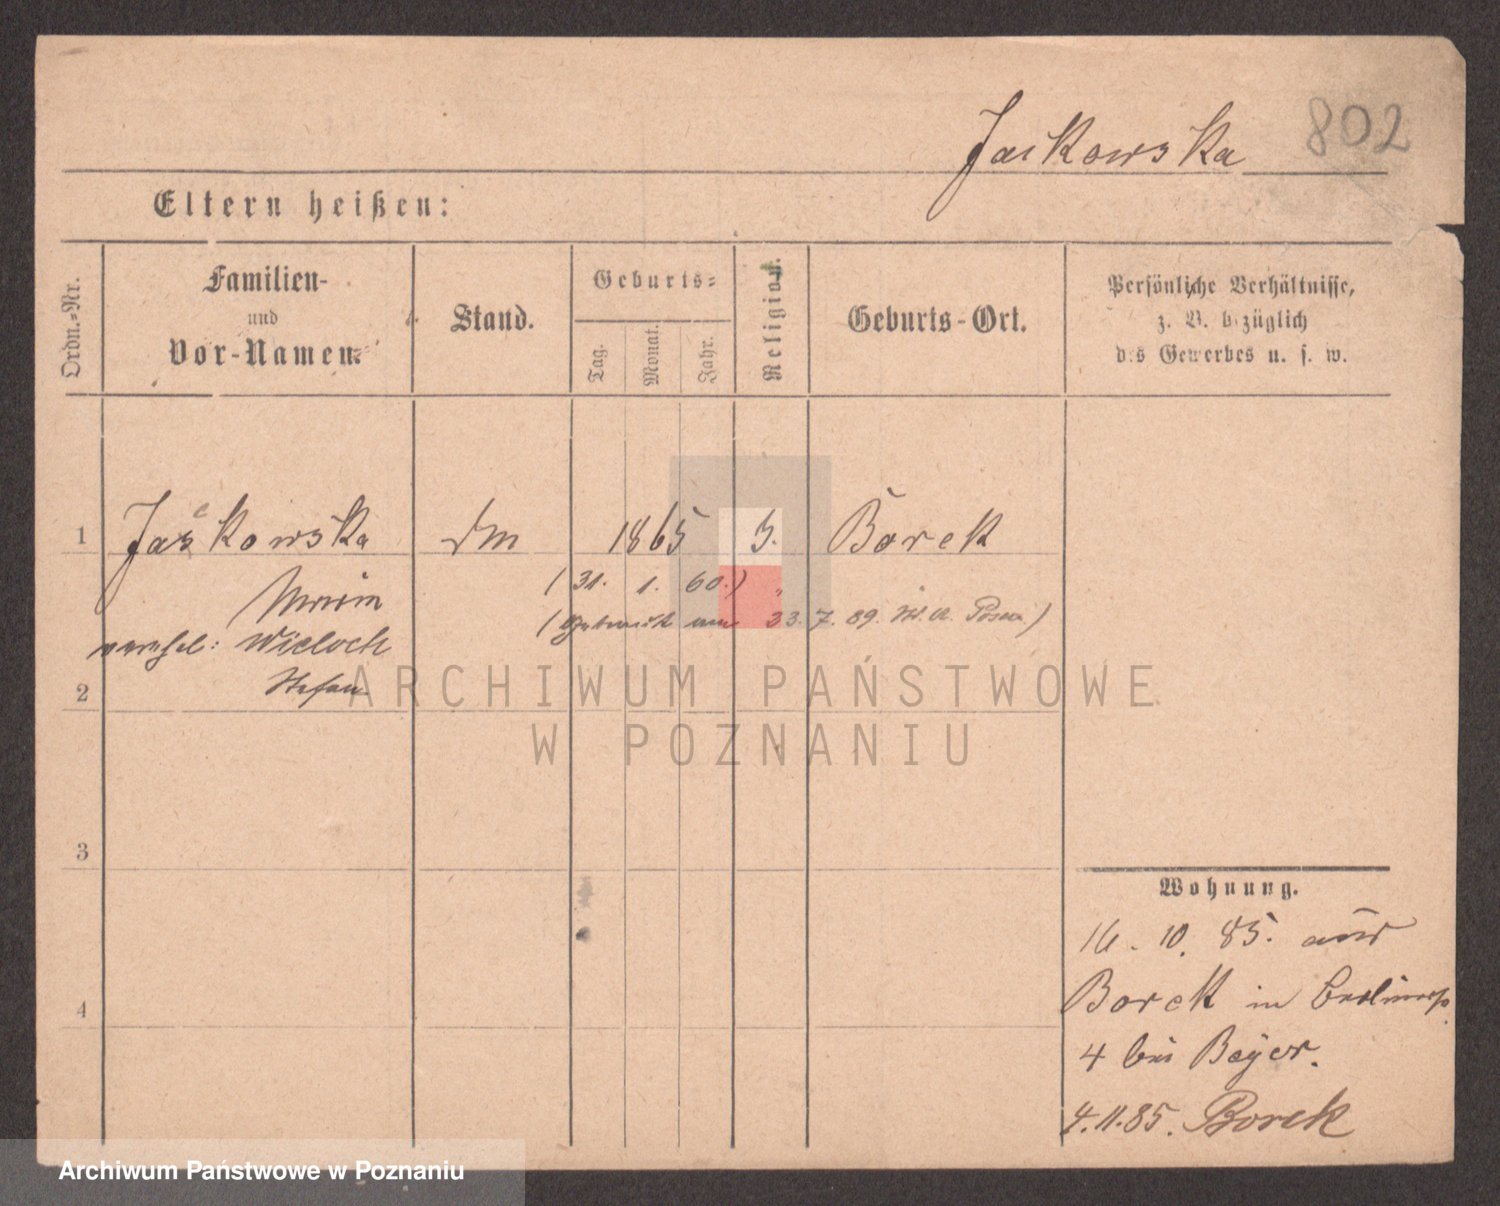 Jaskowska 802
Eltern heißen:
Ordn.-Nr.
Familien-
und
Vor-Namen.
Stand.
Geburts-
Tag.
Monat.
Jahr.
Religion.
Geburts-Ort.
Persönliche Verhältnisse,
z. B. bezüglich
des Gewerbes u. s. w.
1 Jaśkowska 1865 Borek
(31. 1. 60.) "
23. 7. 89. Posen)
Wieloch
2 Stefan
ARCHIWUM PAŃSTWOWE
W POZNANIU
3
Wohnung.
16. 10. 85. aus
Borek in
4 bei Beyer.
4
4. 11. 85. Borek
Archiwum Państwowe w Poznaniu